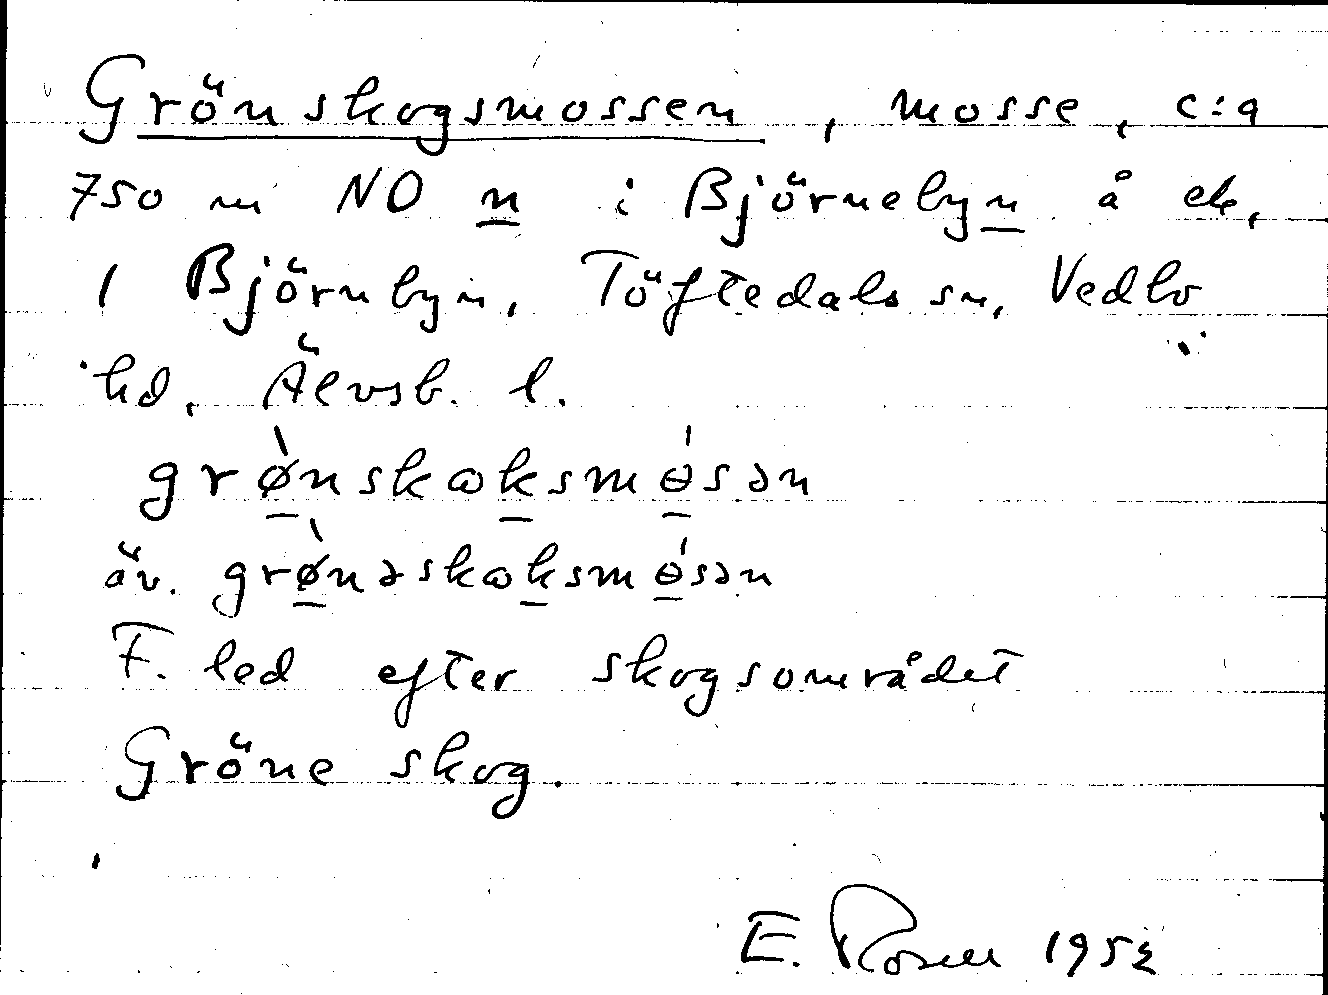 Grönskogsmossen, mosse, c:a
750 m NO n i Björnebyn å ek.
1 Björnbyn, Töftedals sn, Vedbo
hd, Älvsb. l.
grø̀nskɷksmɵ́sən
äv. grø̀nəskɷksmɵ́sən
F. led efter skogsområdet
Gröne skog.
E. Rosen